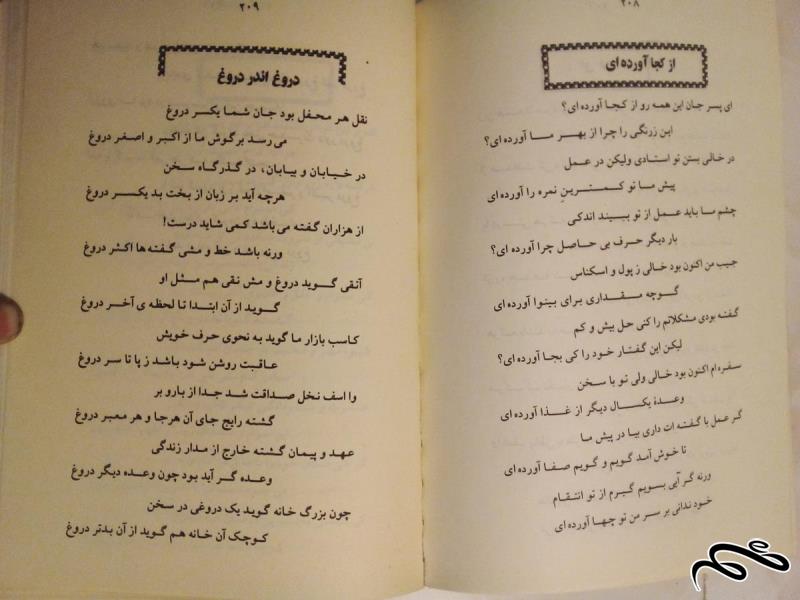 ۲۰۸
از کجا آورده ای
ای پسر جان این همه رو از کجا آورده ای؟
این زرنگی را چرا از بهر ما آورده ای؟
در خالی بستن تو استادی ولیکن در عمل
پیش ما تو کمترین نمره را آورده ای
چشم ما باید عمل از تو ببیند اندکی
بار دیگر حرف بی حاصل چرا آورده ای؟
جیب من اکنون بود خالی ز پول و اسکناس
گوچه مقداری برای بینوا آورده ای
گفته بودی مشکلاتم را کنی حل بیش و کم
لیکن این گفتار خود را کی بجا آورده ای؟
سفره ام اکنون بود خالی ولی تو با سخن
وعدهٔ یکسال دیگر از غذا آورده ای
گر عمل با گفته ات داری بیا در پیش ما
تا خوش آمد گویم و گویم صفا آورده ای
ورنه گر آیی بسویم گیرم از تو انتقام
خود ندانی بر سر من تو چها آورده ای
۲۰۹
دروغ اندر دروغ
نقل هر محفل بود جان شما یکسر دروغ
می رسد برگوش ما از اکبر و اصغر دروغ
در خیابان و بیابان، در گذرگاه سخن
هرچه آید بر زبان از بخت بد یکسر دروغ
از هزاران گفته می باشد کمی شاید درست!
ورنه باشد خط و مشی گفته ها اکثر دروغ
آتقی گوید دروغ و مش نقی هم مثل او
گوید از آن ابتدا تا لحظه ی آخر دروغ
کاسب بازار ما گوید به نحوی حرف خویش
عاقبت روشن شود باشد ز پا تا سر دروغ
وا اسف نخل صداقت شد جدا از بارو بر
گشته رایج جای آن هرجا و هر معبر دروغ
عهد و پیمان گشته خارج از مدار زندگی
وعده گر آید بود چون وعده دیگر دروغ
چون بزرگ خانه گوید یک دروغی در سخن
کوچک آن خانه هم گوید از آن بدتر دروغ